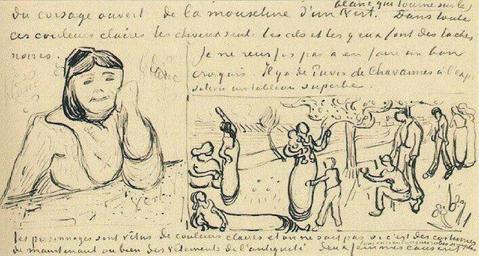 blanc, qui tourne sur le
du corsage ouvert de la mousseline d'un vert. Dans toute
ces couleurs claires les cheveux sont les cils et les yeux sont des taches
noires.
Je ne reussis pas a en faire un bon
croquis. Il y a de Puvis de Chavannes à l'exp
un tableau superbe
blanc
vert
les personnages sont vêtus de couleurs claires et on ne sait pas si c'est des costumes
de maintenant ou bien des vêtements de l'antiquité deux femmes causent